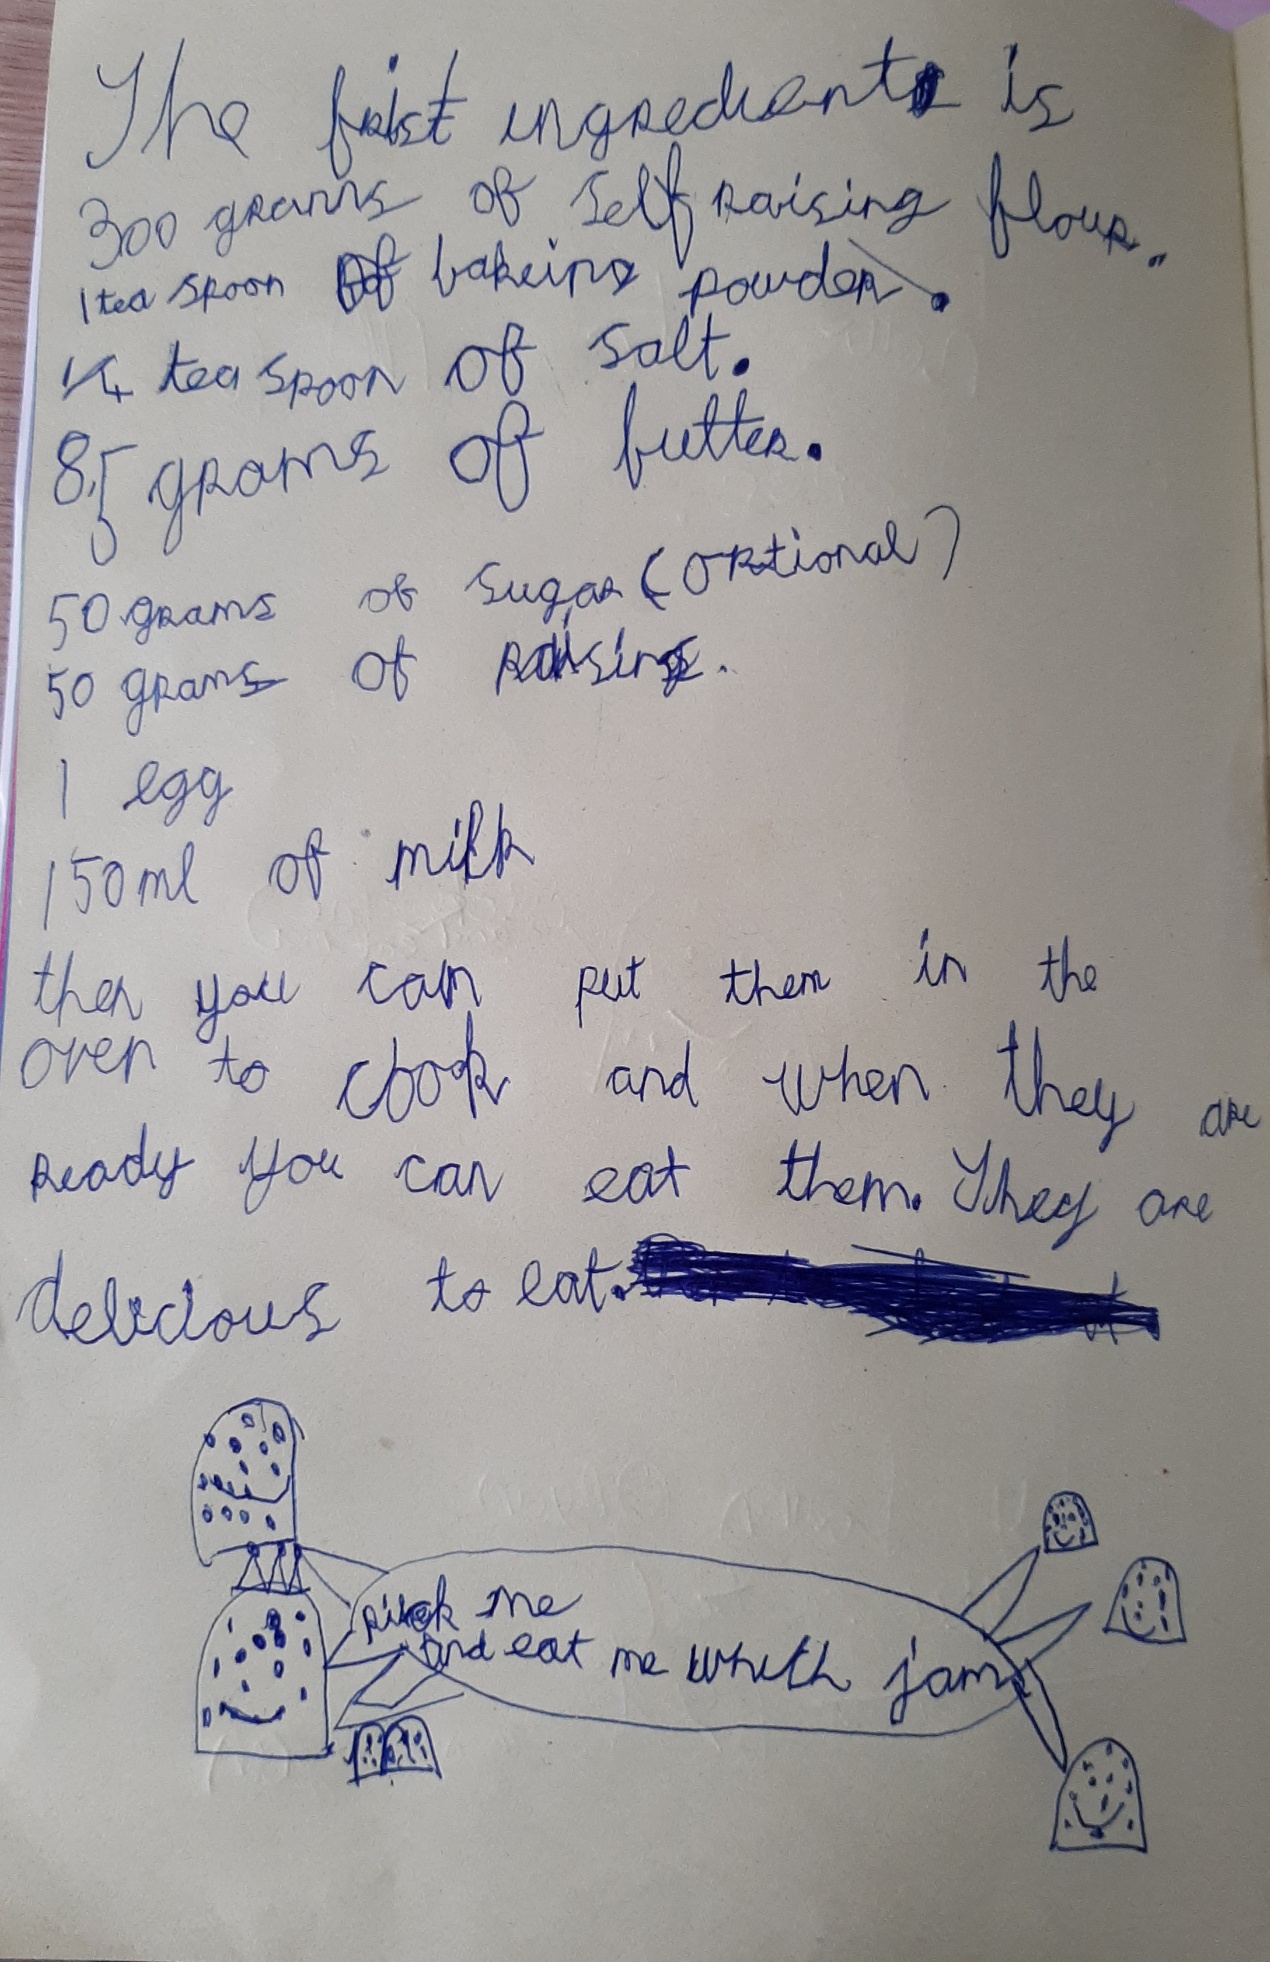 The frist ingredient is
300 grams of Self raising flour.
1 tea spoon of bakeing powder.
1/4 tea spoon of salt.
85 grams of butter.
50 grams of sugar (optional)
50 grams of raisins.
1 egg
150ml of milk
then you can put them in the
oven to cook and when they are
ready you can eat them. They are
delicious to eat.
pick me
and eat me whith jam